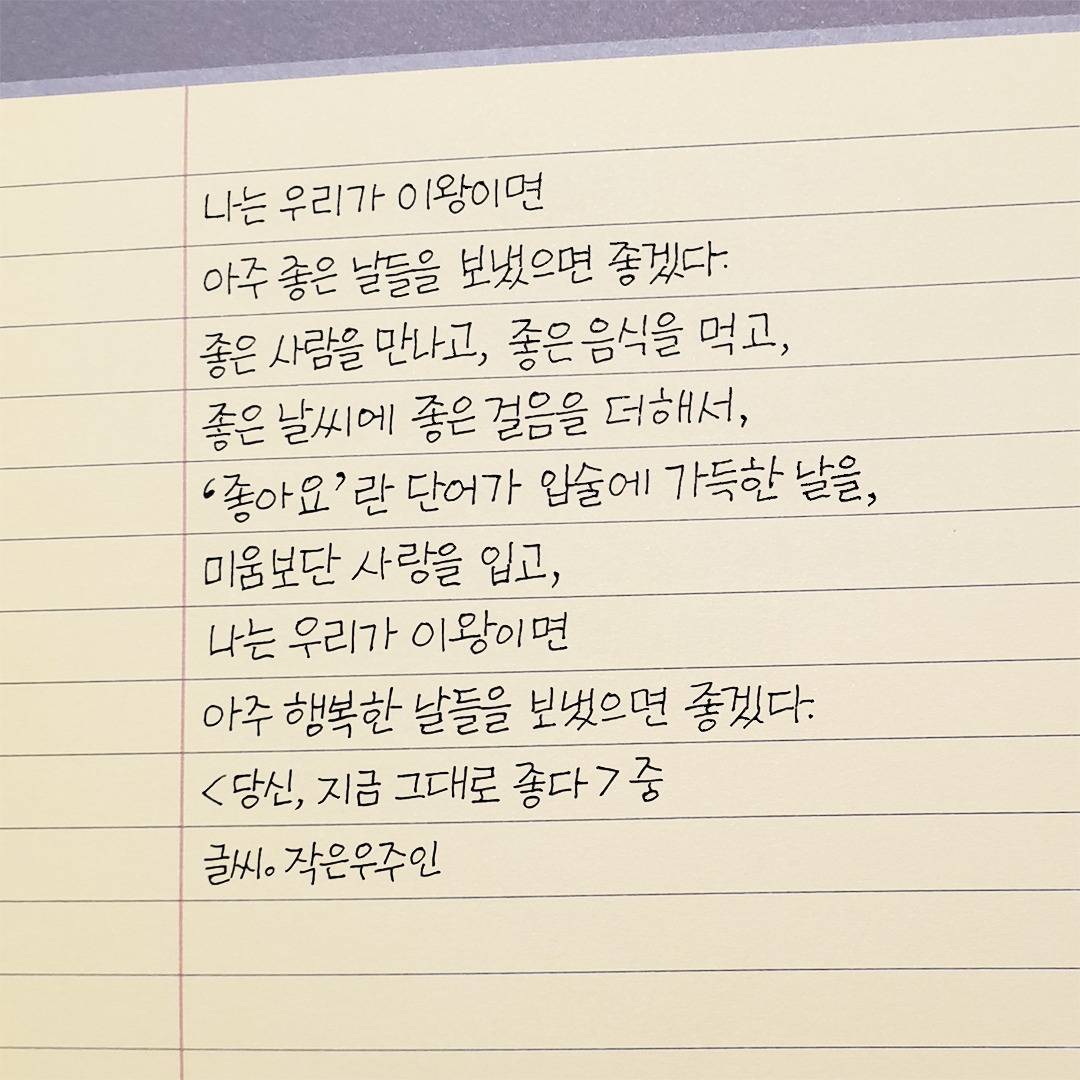 나는 우리가 이왕이면
아주 좋은 날들을 보냈으면 좋겠다.
좋은 사람을 만나고, 좋은 음식을 먹고,
좋은 날씨에 좋은 걸음을 더해서,
‘좋아요’란 단어가 입술에 가득한 날을,
미움보단 사랑을 입고,
나는 우리가 이왕이면
아주 행복한 날들을 보냈으면 좋겠다.
<당신, 지금 그대로 좋다> 중
글씨。작은우주인